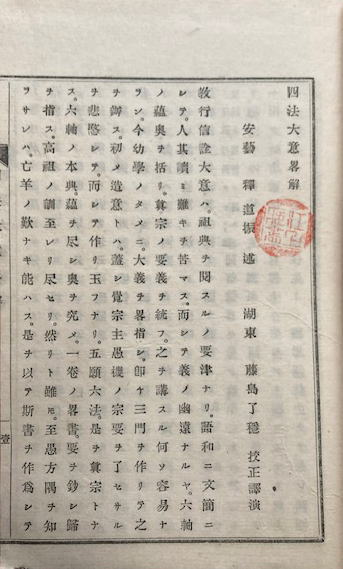 四法大意畧解
安藝 釋道振 述 湖東 藤島了穩 校正譯演
教行信證大意ハ。祖典ヲ閲スルノ要津ナリ。語和ニ文簡ニ
シテ。人其讀ミ難キヲ苦マス。而シテ義ノ幽遠ナルヤ。六軸
ノ蘊奥ヲ括リ。眞宗ノ要義ヲ統フ。之ヲ講スル何ソ容易ナ
ラン。今幼學ノタメニ。大義ヲ畧指シ。卽ケ三門ヲ作リテ之
ヲ御ス。初メ造意トハ。蓋シ覺宗主愚機ノ宗要ヲ了セサル
ヲ悲愍シテ。而シテ作リ玉フナリ。五願六法。是ヲ眞宗トナ
ス。六軸ノ本典。蘊ヲ尽シ奥ヲ究メ。一卷ノ畧書。要ヲ鈔シ歸
ヲ指ス。高祖ノ訓至レリ尽セリ。然リト雖𪜈。至愚方隅ヲ知
ラサレハ。亡羊ノ歎ナキ能ハス。是ヲ以テ斯書ヲ作爲シテ
壹